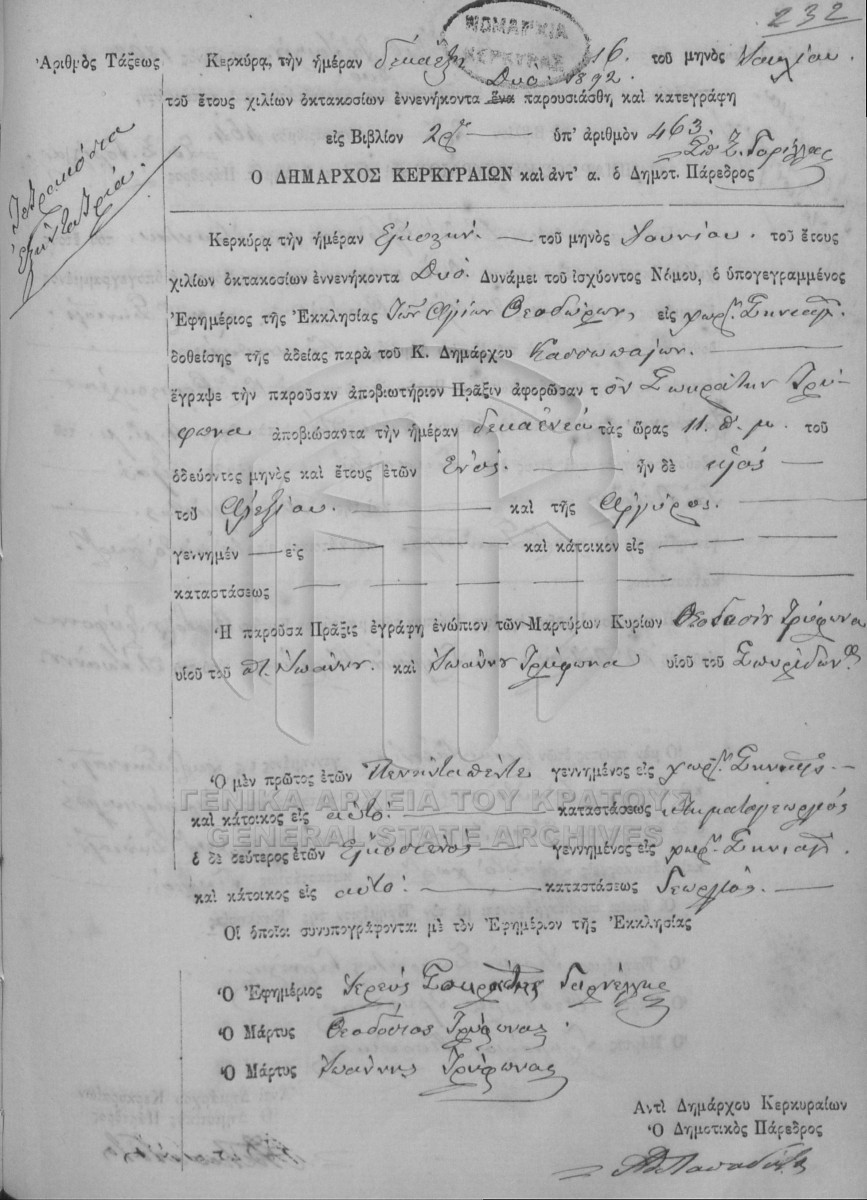 232
ΝΟΜΑΡΧΙΑ
ΚΕΡΚΥΡΑΣ
Ἀριθμὸς Τάξεως Κερκύρᾳ, τὴν ἡμέραν δεκαέξη 16 τοῦ μηνὸς Ἰουλίου.
Δύο 1892.
τοῦ ἔτους χιλίων ὀκτακοσίων ἐννενήκοντα ἕνα παρουσιάσθη καὶ κατεγράφη
εἰς Βιβλίον 2ον ὑπ' ἀριθμὸν 463
Τετρακόσια
ἑξήντα τρία.
Ο ΔΗΜΑΡΧΟΣ ΚΕΡΚΥΡΑΙΩΝ καὶ ἀντ' α. ὁ Δημοτ. Πάρεδρος
Κερκύρᾳ τὴν ἡμέραν τοῦ μηνὸς Ἰουνίου. τοῦ ἔτους
χιλίων ὀκτακοσίων ἐννενήκοντα Δυό. Δυνάμει τοῦ ἰσχύοντος Νόμου, ὁ ὑπογεγραμμένος
Ἐφημέριος τῆς Ἐκκλησίας Τῶν Ἁγίων Θεοδώρων, εἰς χωρ.
δοθείσης τῆς ἀδείας παρὰ τοῦ Κ. Δημάρχου Κασσωπαίων.
ἔγραψε τὴν παροῦσαν ἀποβιωτήριον Πρᾶξιν ἀφορῶσαν τ ὸν Σωκράτην Τρύ-
φωνα ἀποβιώσαντα τὴν ἡμέραν δεκαενέα τὰς ὥρας 11. π. μ. τοῦ
ὁδεύοντος μηνὸς καὶ ἔτους ἐτῶν Ἑνός. ἦν δὲ υἱός
τοῦ Ἀλεξίου. καὶ τῆς Ἀργύρως.
γεννημέν εἰς καὶ κάτοικον εἰς
καταστάσεως
Ἡ παροῦσα Πρᾶξις ἐγράφη ἐνώπιον τῶν Μαρτύρων Κυρίων Θεοδόσιν Τρύφωνα
υἱοῦ τοῦ π. Ἰωάννη. καὶ Ἰωάννην Τρύφωνα υἱοῦ τοῦ Σπυρίδωνος
Ὁ μὲν πρῶτος ἐτῶν Πενηνταπέντε γεννημένος εἰς χωρ.
καὶ κάτοικος εἰς αὐτό. καταστάσεως κτηματογεωργός
ὁ δὲ δεύτερος ἐτῶν Εἰκοσιενός γεννημένος εἰς χωρ.
καὶ κάτοικος εἰς αὐτό. καταστάσεως Γεωργός.
Οἱ ὁποῖοι συνυπογράφονται μὲ τὸν Ἐφημέριον τῆς Ἐκκλησίας
Ὁ Ἐφημέριος Ἱερεύς Σωκράτης
Ὁ Μάρτυς Θεοδόσιος Τρύφωνας.
Ὁ Μάρτυς Ἰωάννης Τρύφωνας
Ἀντὶ Δημάρχου Κερκυραίων
Ὁ Δημοτικὸς Πάρεδρος
ΓΕΝΙΚΑ ΑΡΧΕΙΑ ΤΟΥ ΚΡΑΤΟΥΣ
GENERAL STATE ARCHIVES